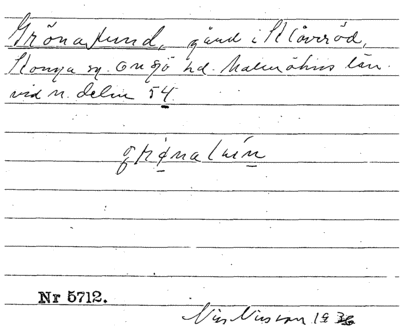 Grönalund, gård i St. Låvröd,
Stonga sn. Onsjö hd. Malmöhus län.
vid n. delen 54.
grø̣nalun̲
Nr 5712.
Nils Nilsson 1936